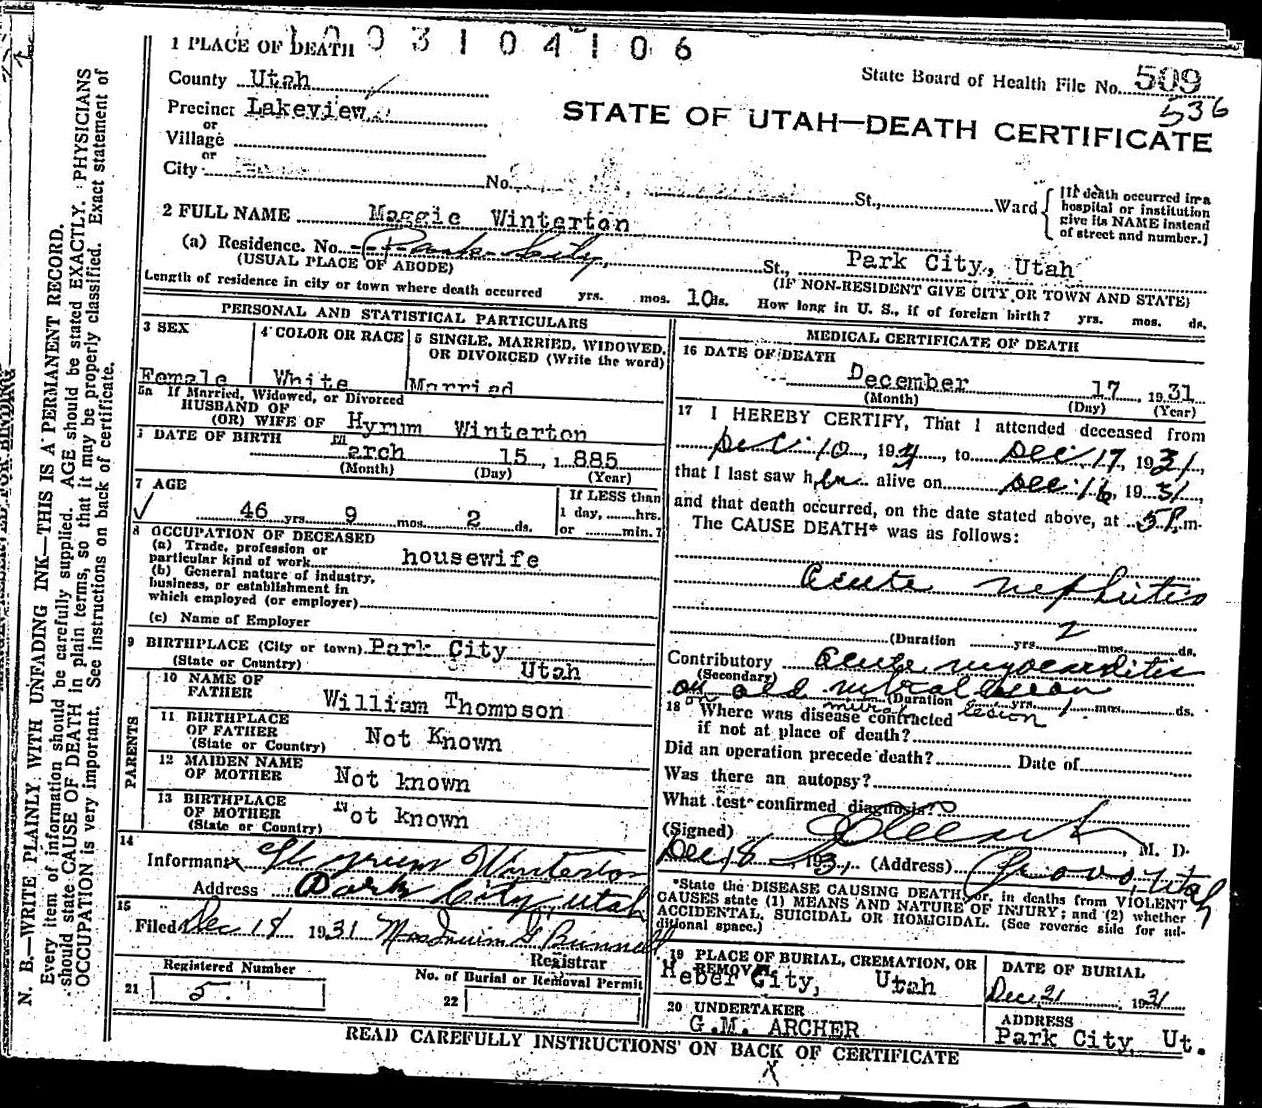 1003104106
1 PLACE OF DEATH
State Board of Health File No. 509
536
County Utah
Precinct Lakeview
or
Village
or
City
STATE OF UTAH—DEATH CERTIFICATE
No. St., Ward
[If death occurred in a hospital or institution give its NAME instead of street and number.]
2 FULL NAME Maggie Winterton
(a) Residence. No. Park City, St., Park City, Utah
(USUAL PLACE OF ABODE) (IF NON-RESIDENT GIVE CITY OR TOWN AND STATE)
Length of residence in city or town where death occurred yrs. mos. 10 ds. How long in U. S., if of foreign birth? yrs. mos. ds.
PERSONAL AND STATISTICAL PARTICULARS
3 SEX
Female
4 COLOR OR RACE
White
5 SINGLE, MARRIED, WIDOWED, OR DIVORCED (Write the word)
Married
5a If Married, Widowed, or Divorced
HUSBAND OF
(OR) WIFE OF Hyrum Winterton
DATE OF BIRTH March 15, 1885
(Month) (Day) (Year)
7 AGE
46 yrs. 9 mos. 2 ds.
If LESS than
1 day, hrs.
or min.?
8 OCCUPATION OF DECEASED
(a) Trade, profession or
particular kind of work housewife
(b) General nature of industry,
business, or establishment in
which employed (or employer)
(c) Name of Employer
9 BIRTHPLACE (City or town) Park City
(State or Country) Utah
PARENTS
10 NAME OF
FATHER William Thompson
11 BIRTHPLACE
OF FATHER
(State or Country) Not Known
12 MAIDEN NAME
OF MOTHER Not known
13 BIRTHPLACE
OF MOTHER
(State or Country) Not known
14
Informant Hyrum Winterton
Address Park City, Utah
15
Filed Dec 18 1931 Mrs G Bunnell
Registrar
Registered Number
21 5
No. of Burial or Removal Permit
22
MEDICAL CERTIFICATE OF DEATH
16 DATE OF DEATH
December 17, 1931
(Month) (Day) (Year)
17 I HEREBY CERTIFY, That I attended deceased from
Dec. 10, 1931, to Dec. 17, 1931,
that I last saw her alive on Dec. 16, 1931,
and that death occurred, on the date stated above, at 5 P. m.
The CAUSE DEATH* was as follows:
Acute nephritis
(Duration yrs. 2 mos. ds.
Contributory Acute myocarditis
(Secondary)
on old mitral lesion
(Duration yrs. 1 mos. ds.
mitral lesion
18 Where was disease contracted
if not at place of death?
Did an operation precede death? Date of
Was there an autopsy?
What test confirmed diagnosis?
(Signed) , M. D.
Dec 18 1931 (Address) Provo, Utah
*State the DISEASE CAUSING DEATH, or, in deaths from VIOLENT
CAUSES state (1) MEANS AND NATURE OF INJURY; and (2) whether
ACCIDENTAL, SUICIDAL OR HOMICIDAL. (See reverse side for ad-
ditional space.)
19 PLACE OF BURIAL, CREMATION, OR
REMOVAL
Heber City, Utah
DATE OF BURIAL
Dec. 21 1931
20 UNDERTAKER
G.M. ARCHER
ADDRESS
Park City, Ut.
READ CAREFULLY INSTRUCTIONS ON BACK OF CERTIFICATE
N. B.—WRITE PLAINLY WITH UNFADING INK—THIS IS A PERMANENT RECORD.
Every item of information should be carefully supplied. AGE should be stated EXACTLY. PHYSICIANS
should state CAUSE OF DEATH in plain terms, so that it may be properly classified. Exact statement of
OCCUPATION is very important. See instructions on back of certificate.